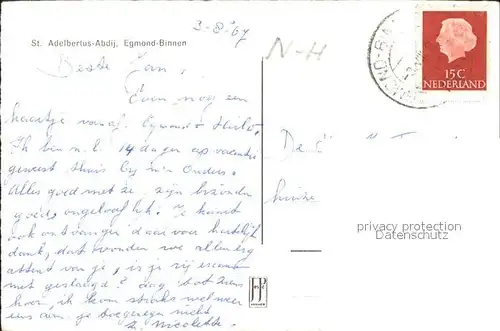 3-8-'67
St. Adelbertus-Abdij, Egmond-Binnen
N-H
Beste Jan,
Even nog een
kaartje vanaf Egmond
Ik ben n.l. 14 dagen op vacantie
geweest thuis bij m'n Ouders.
Alles goed met ze. zijn bizonder
goed, ongelooflijk. Je kaart
ook ontvangen daarvoor hartelijk
dank, dat vonden we allen erg
attent van je, is je zij examen
met geslaagd? dag tot ziens
hoor, ik kom straks wel weer
eens aan. je toegenegen nicht
z. Nicolette.
15 C
NEDERLAND
privacy protection
Datenschutz